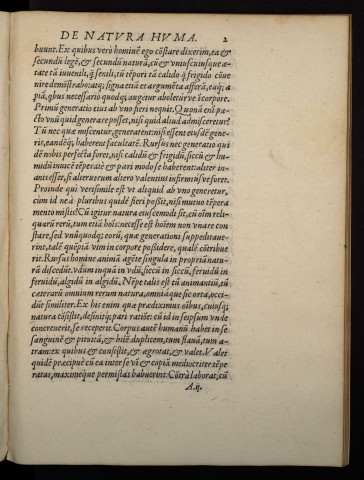 DE NATVRA HVMA. 2
buunt. Ex quibus verò hominē ego cōstare dixerim, ea &
secundū legē, & secundū naturā, cū & vniscuiusque æ-
tate tā iuuenili, q̃ senili, tū tēpori tā calido q̃ frigido cōue
nire demōstrabo: atq; signa etiā et argumēta afferā, eaq; a-
piā, q̃bus necessario quodq; augetur aboletur ve ī corpore.
Primū generatio eius ab vno fieri nequit. Quonā enī pa
cto vnū quid generare posset, nisi quid aliud admisceretur?
Tū nec quæ miscentur, generarent: nisi essent eiusdē gene-
ris, eandēq; haberent facultatē. Rursus nec generatio qui
dē nobis perfecta foret, nisi calidū & frigidū, siccū & hu-
midū inuicē tēperatè & pari modo se haberent: aliter in-
anis esset, si alterū rum altero valentius infirmius ve foret.
Proinde qui verisimile est vt aliquid ab vno generetur,
cum id ne à pluribus quidē fieri possit, nisi mutuo tēpera
mento mistis? Cū igitur natura eiuscemodi sit, cū oīm reli-
quarū rerū, tum etiā hoīs: necesse est hoīem non vnāre con
stare, sed vnūquodq; eorū, quæ generationi suppeditaue-
rint, talē quēpiā vim in corpore possidere, qualē cōtribue
rit. Rursus homine animā agēte singula in propriā natu-
rā discedūt. vdum inquā in vdū, siccū in siccū, feruidū in
feruidū, algidū in algidū. Népe talis est tū animantiū, tū
cæterarū omnium rerum natura, omniáque sic orta, occi-
dūt similiter. Ex his enim quæ prædiximus oībus, cuiusq;
natura cōsistit, desinitq; pari ratiōe: cū id in seipsum vn de
concreuerit, se receperit. Corpus autē humanū habet in se
sanguinē & pituitā, & bilē duplicem, tum flauā, tum a-
tram: ex quibus & consistit, & ægrotat, & valet. Valet
quidē præcipuè cū ea inter se vi & copiā mediocriter tēpe
ratas, maximeq́ue permistas habuerint: Cōtrà laborat, cū
A.ij.